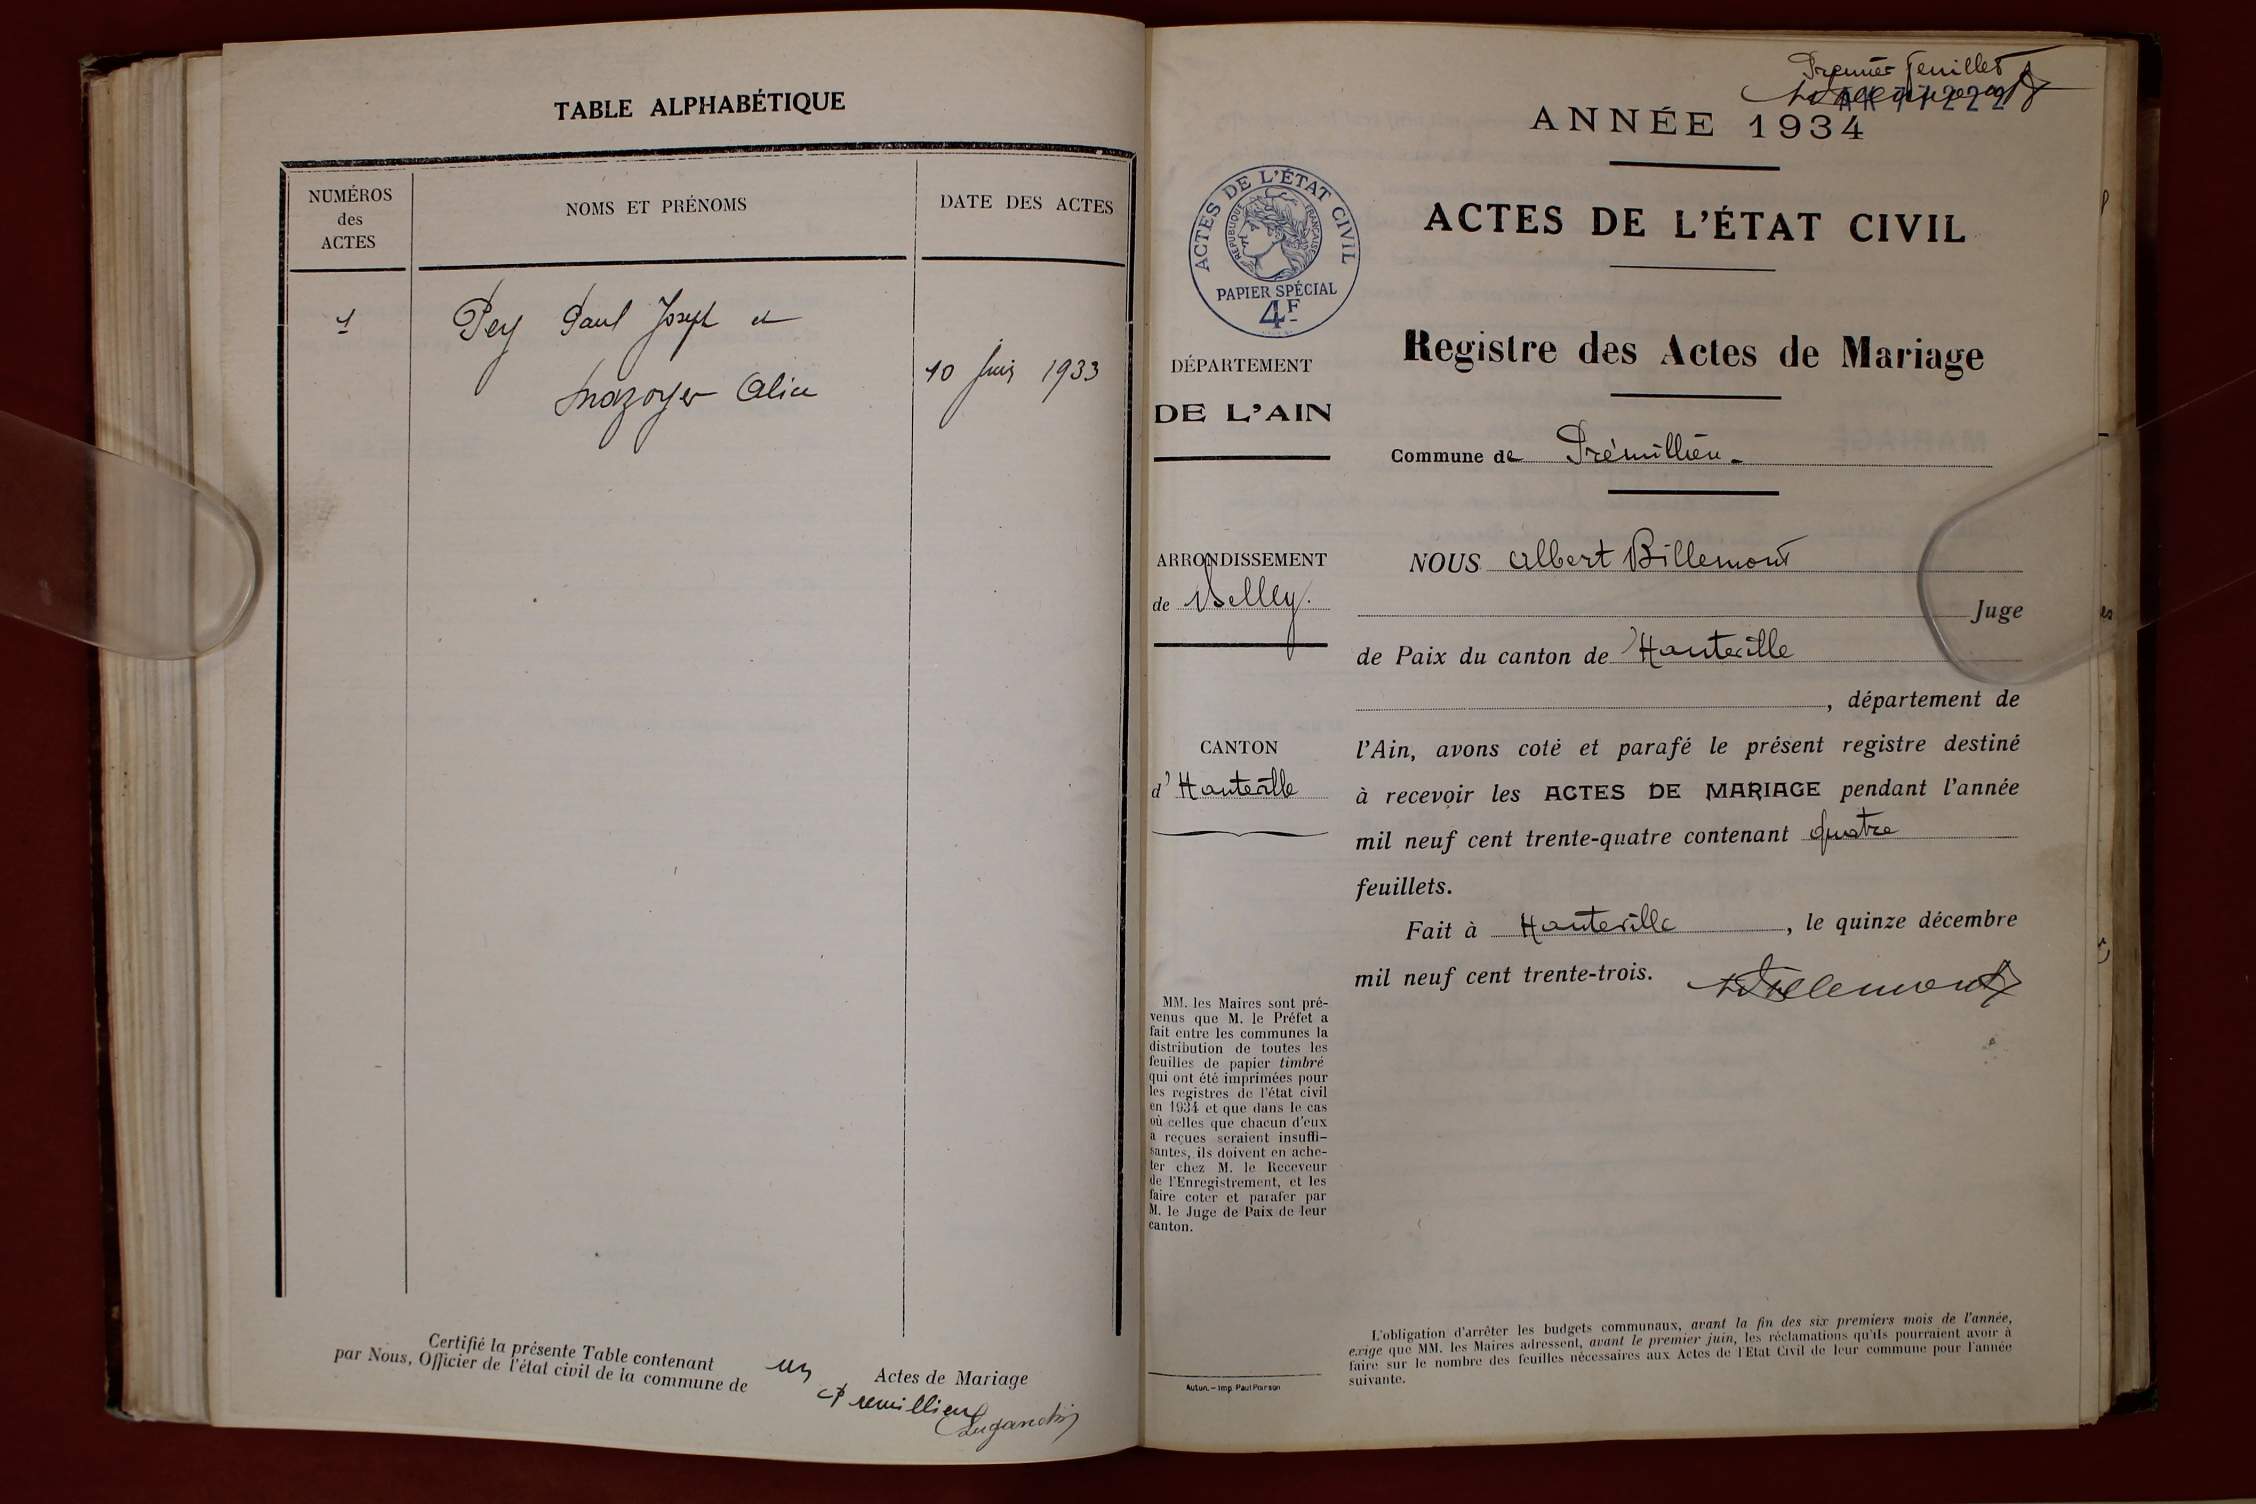 TABLE ALPHABÉTIQUE
NUMÉROS
des
ACTES
NOMS ET PRÉNOMS
DATE DES ACTES
1
Pey Paul Joseph et
Mazoyer Alice
10 Juin 1933
Certifié la présente Table contenant un Actes de Mariage
par Nous, Officier de l'état civil de la commune de Premillieu
Premier feuillet
ANNÉE 1934
ACTES DE L'ÉTAT CIVIL
RÉPUBLIQUE FRANÇAISE
PAPIER SPÉCIAL
4F
ACTES DE L'ÉTAT CIVIL
Registre des Actes de Mariage
DÉPARTEMENT
DE L'AIN
Commune de Prémillieu
ARRONDISSEMENT
de Belley.
CANTON
d'Hauteville
NOUS Albert Billemont
Juge
de Paix du canton de Hauteville
, département de
l'Ain, avons coté et parafé le présent registre destiné
à recevoir les ACTES DE MARIAGE pendant l'année
mil neuf cent trente-quatre contenant quatre
feuillets.
Fait à Hauteville, le quinze décembre
mil neuf cent trente-trois.
Billemont
MM. les Maires sont pré-
venus que M. le Préfet a
fait entre les communes la
distribution de toutes les
feuilles de papier timbré
qui ont été imprimées pour
les registres de l'état civil
en 1934 et que dans le cas
où celles que chacun d'eux
a reçues seraient insuffi-
santes, ils doivent en ache-
ter chez M. le Receveur
de l'Enregistrement, et les
faire coter et parafer par
M. le Juge de Paix de leur
canton.
Autun. — Imp. Paul Poirson
L'obligation d'arrêter les budgets communaux, avant la fin des six premiers mois de l'année,
exige que MM. les Maires adressent, avant le premier juin, les réclamations qu'ils pourraient avoir à
faire sur le nombre des feuilles nécessaires aux Actes de l'Etat Civil de leur commune pour l'année
suivante.